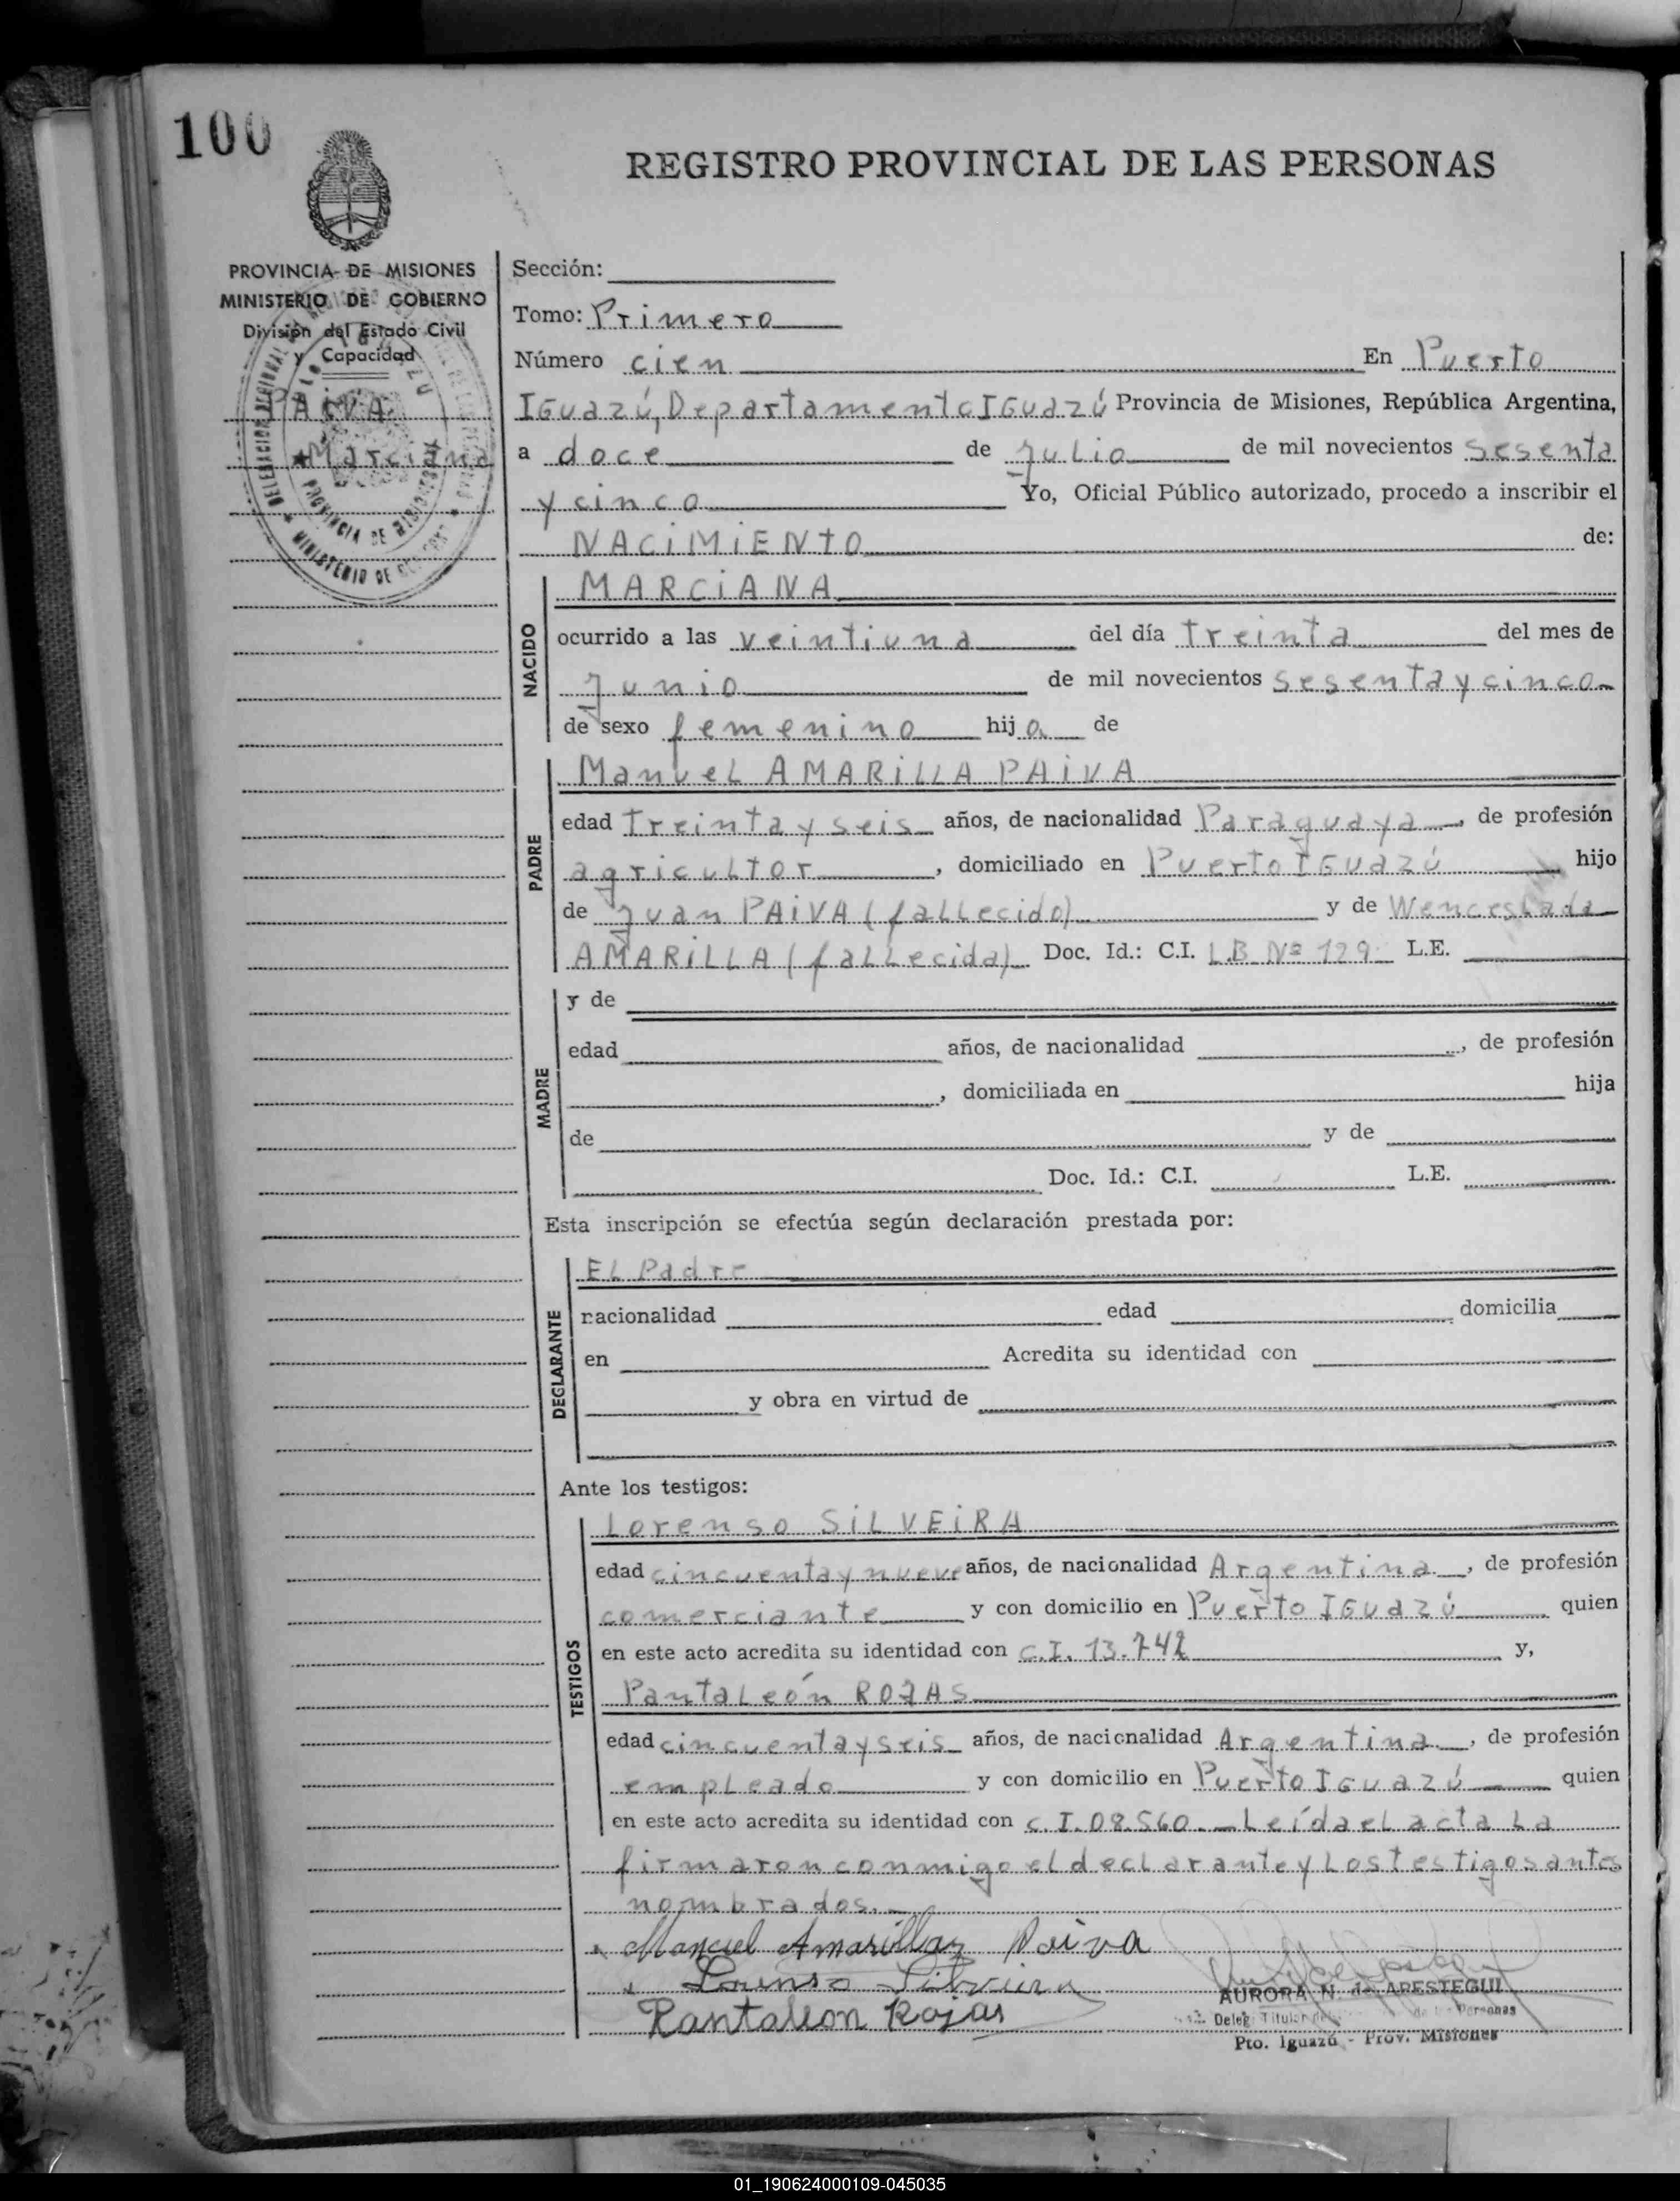 100
REGISTRO PROVINCIAL DE LAS PERSONAS
PROVINCIA DE MISIONES
MINISTERIO DE GOBIERNO
División del Estado Civil
y Capacidad
PAiVA
Marciana
PROVINCIA DE MISIONES
MINISTERIO DE
Sección:
Tomo: Primero
Número cien En Puerto
IGuazú, Departamento IGuazú Provincia de Misiones, República Argentina,
a doce de julio de mil novecientos sesenta
y cinco Yo, Oficial Público autorizado, procedo a inscribir el
NACiMiENtO de:
NACIDO
MARCiANA
ocurrido a las veintiuna del día treinta del mes de
junio de mil novecientos sesenta y cinco
de sexo femenino hija de
PADRE
Manuel AMARiLLA PAiVA
edad treinta y seis años, de nacionalidad Paraguaya, de profesión
agricultor, domiciliado en Puerto IGuazú hijo
de juan PAiVA (fallecido) y de Wenceslada
AMARiLLA (fallecida) Doc. Id.: C.I. L.B. Nº 129 L.E.
MADRE
y de
edad años, de nacionalidad , de profesión
, domiciliada en hija
de y de
Doc. Id.: C.I. L.E.
Esta inscripción se efectúa según declaración prestada por:
DECLARANTE
El Padre
nacionalidad edad domicilia
en Acredita su identidad con
y obra en virtud de
Ante los testigos:
TESTIGOS
Lorenso SiLVEiRA
edad cincuenta y nueve años, de nacionalidad Argentina, de profesión
comerciante y con domicilio en Puerto IGuazú quien
en este acto acredita su identidad con c.I. 13.742 y,
Pantaleón ROJAS
edad cincuenta y seis años, de nacionalidad Argentina, de profesión
empleado y con domicilio en Puerto IGuazú quien
en este acto acredita su identidad con c.I. 08.560. Leída el acta la
firmaron conmigo el declarante y los testigos antes
nombrados.
Manuel Amarilla Paiva
Lorenso Silveira
Pantalion Rojas
AURORA N. de ARESTEGUI
Deleg. Titular de las Personas
Pto. Iguazú - Prov. Misiones
01_190624000109-045035